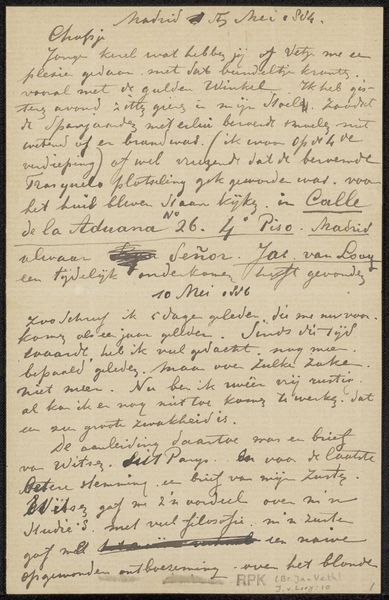 Madrid 5 Mei 1886.
Chafsje
Jonge kerel wat hebben jij of Vetje me een
plesie gedaan met dat bundeltje krante,
vooral met de gulden Winkel. Ik heb gis-
teren avond zitten in mijn Stoel, zoodat
de Spanjaarden met
wetend of er brand was. (ik woon op de 4de
verdieping) of wel vreezend dat de beroemde
Frasquelo plotseling gek geworden was. voor
het huis bleven staan kijken. in Calle
de la Aduana No 26. 4o Piso. Madrid
alwaar Señor. Jac. van Looy
een tijdelijk onderkomen heeft gevonden
10 Mei 1886
Zoo schreef ik 5 dagen geleden, die me nu voor-
komen als een jaar geleden. Sinds die tijd
heb ik veel gedacht, nog meer
bepaald geleden, maar over zulke zaken
niet meer. Nu ben ik weer vrij rustig
al kan ik er nog niet toe komen te werken. dat
en een groote zwakheid is.
De aanleiding daartoe was een brief
van Witsen. uit Parijs. En van de laatste
betere stemming een brief van mijn Zuster.
Witsen gaf me 'n oordeel over m'n
Studie's, met veel filosofie, m'n zuster
gaf me een nauwe
opgewonden ontboezeming over het blonde
RPK
(Br. Jan Veth)
J. v. Looy: 10
1